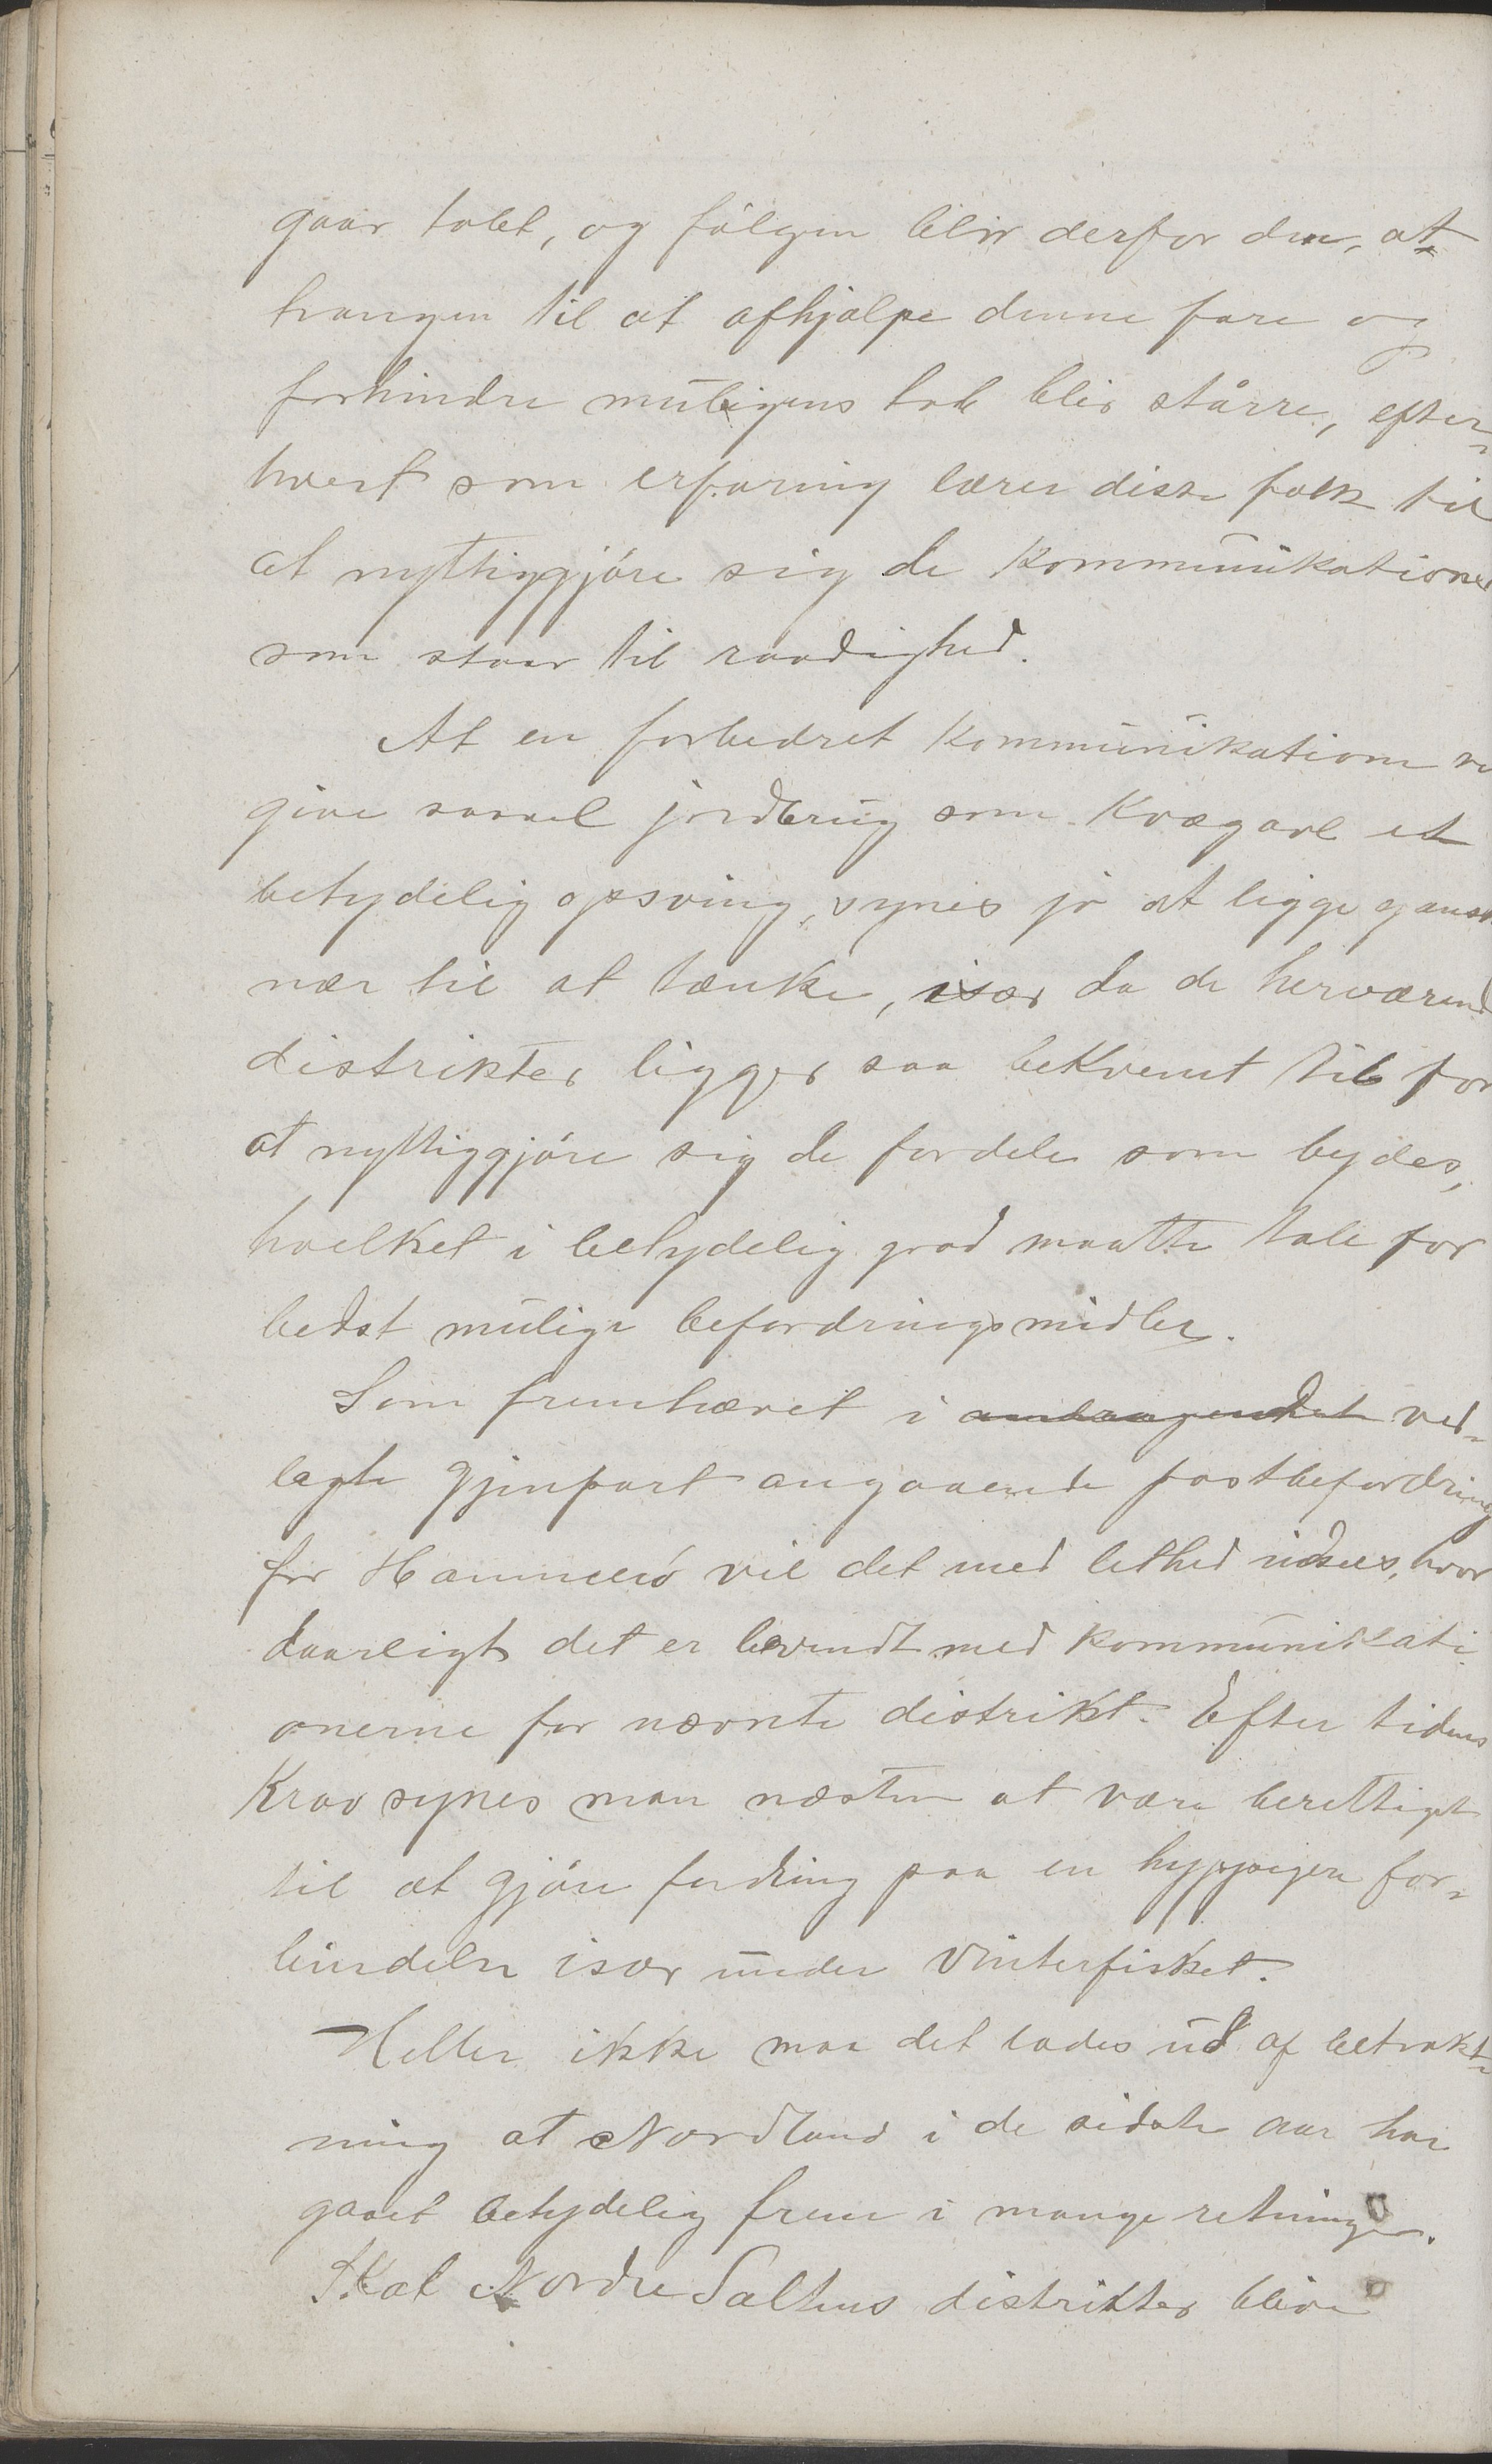 gaar tabt, og følgen blir derfor den, at
trangen til at afhjælpe denne fare og
forhindre muligens tab blir større, efter-
hvert som erfaring lærer disse folk til
at nyttiggjøre sig de kommunikationer
som staar til raadighed.
At en forbedret kommunikation vi
give saavel jordbrug som kvægavl et
betydelig opsving, synes jo at ligge gansk
nær til at tænke, især da de herværend
distrikter ligger saa bekvemt til for
at nyttiggjøre sig de fordele som bydes,
hvilket i betydelig grad maatte tale for
bedst mulige befordringsmidler.
Som fremhævet i andragendet ved-
lagte gjenpart angaaende postbefordring
for Hammerø vil det med lethed indsees, hvor
daarligt det er bevendt med kommunikati
onerne for nævnte distrikt. Efter tidens
krav synes man næsten at være berettiget
til at gjøre fordring paa en hyppigere for-
bindelse især under vinterfisket.
Heller ikke maa det lades ud af betrakt-
ning at Nordland i de sidste aar har
gaaet betydelig frem i mange retninger.
Skal Nordre Saltens distrikter blive